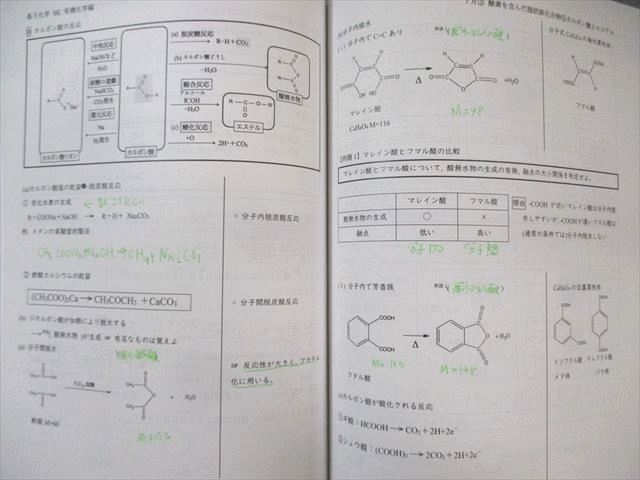 高3化学 SK 有機化学編
カルボン酸の反応
中和反応
NaOHなど
弱酸の遊離
NaHCO₃
CO₂発生
還元反応
Na
H₂発生
カルボン酸イオン
カルボン酸
(a) 脱炭酸反応
R-H+CO₂
(b) カルボン酸どうし
-H₂O
縮合反応
アルコール
R'OH
-H₂O
(c) 酸化反応
+O
2H⁺+CO₂
エステル
酸無水物
(a)カルボン酸塩の乾留・脱炭酸反応
① 炭化水素の生成
R-COONa+NaOH → R-H + Na₂CO₃
例. メタンの実験室的製法
CH₃COONa+NaOH→CH₄+Na₂CO₃
分子内脱炭酸反応
② 酢酸カルシウムの乾留
(CH₃COO)₂Ca → CH₃COCH₃ + CaCO₃
分子間脱炭酸反応
(b) ジカルボン酸が加熱により脱水する
酸無水物 )が生成 ☞ 有名なものは覚えよ
(a) 分子間脱水
H₂O
酢酸
M=102
☞ 反応性が大きく、アセチル
化に用いる。
7月③ 酸素を含んだ脂肪族化合物③カルボン酸とエステル
(b)分子内脱水
(i) 分子内で C=C あり
無水マレイン酸
分子式C₄H₄O₄の幾何異性体
Δ
+H₂O
M=98
HOOC
COOH
マレイン酸
C₄H₄O₄ M=116
フマル酸
【例題1】マレイン酸とフマル酸の比較
マレイン酸とフマル酸について、酸無水物の生成の有無、融点の大小関係を判定せよ。
マレイン酸 フマル酸
酸無水物の生成 ○ ×
融点 低い 高い
分子内 分子間
理由 -COOH が近いマレイン酸は分子内脱
水しやすいが、-COOHが遠いフマル酸は
(通常の条件では)分子内脱水しない
(ii) 分子内で芳香族
無水フタル酸
C₈H₆O₄の位置異性体
COOH
COOH
Δ
+ H₂O
M=166
M=148
フタル酸
イソフタル酸 テレフタル酸
メタ体 パラ体
(c)カルボン酸が酸化される反応
①ギ酸：HCOOH → CO₂ + 2H+2e⁻
②シュウ酸：(COOH)₂ → 2CO₂ + 2H+2e⁻